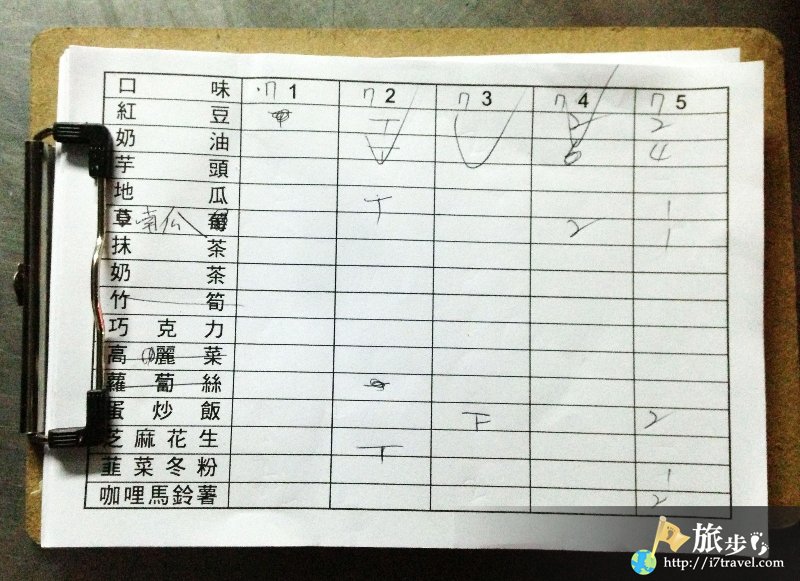 口味 7 1 7 2 7 3 7 4 7 5
紅豆 T 2 2
奶油 下 6 4
芋頭
地瓜 T 1
草莓 南瓜 2 1
抹茶
奶茶
竹筍
巧克力
高麗菜
蘿蔔絲
蛋炒飯 下 2
芝麻花生 T
韮菜冬粉 1
咖哩馬鈴薯 2
旅步
http://i7travel.com